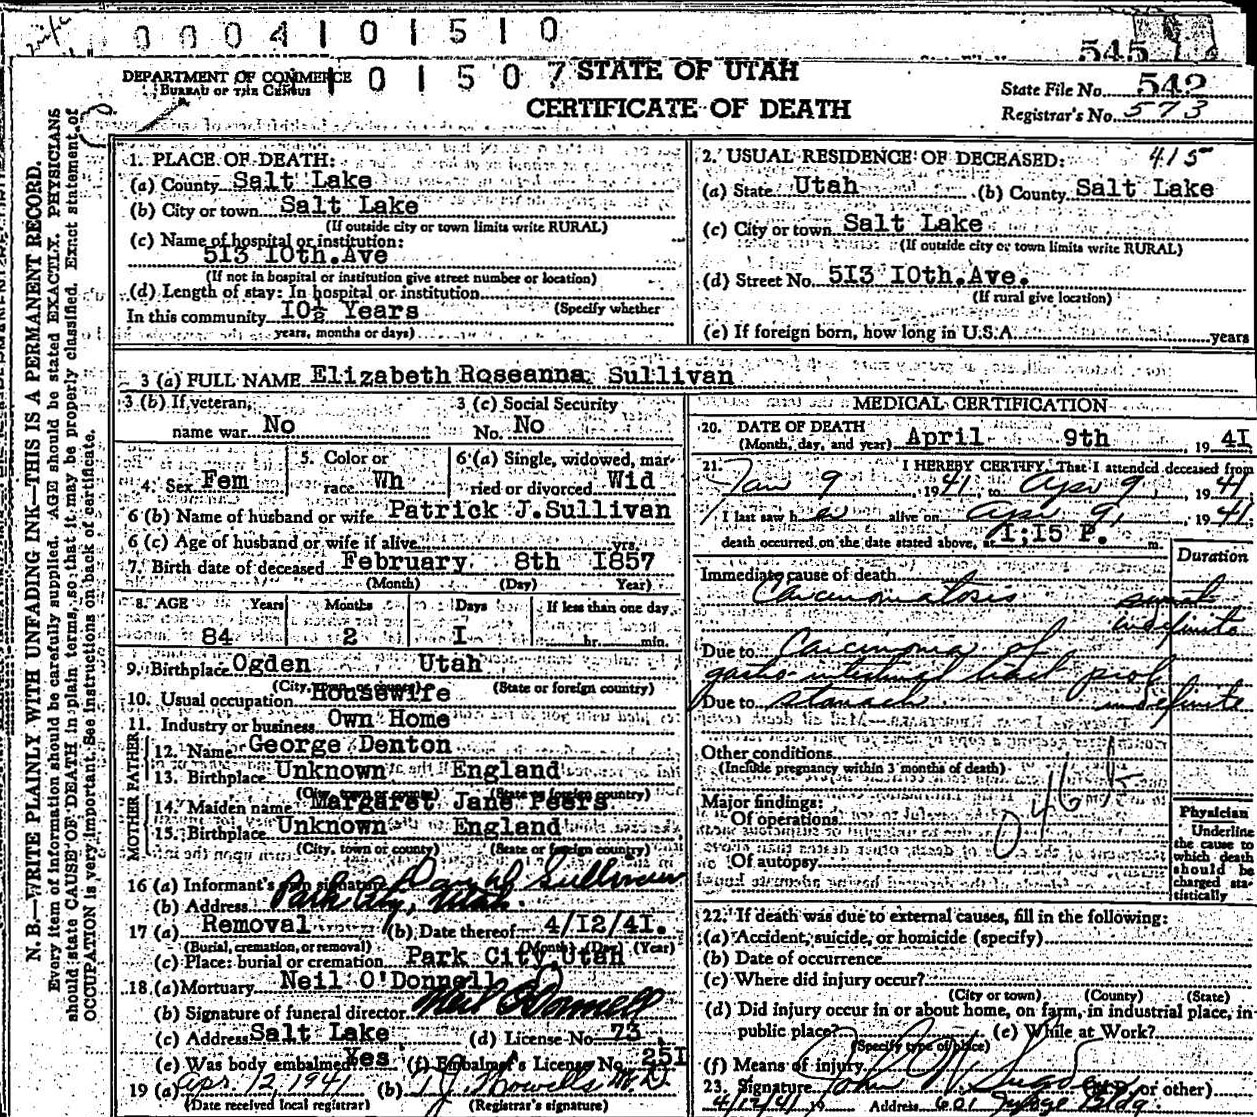 0 0 0 4 1 0 1 5 1 0
545
DEPARTMENT OF COMMERCE
BUREAU OF THE CENSUS
0 1 5 0 7
STATE OF UTAH
CERTIFICATE OF DEATH
State File No. 542
Registrar's No. 573
N. B.—WRITE PLAINLY WITH UNFADING INK—THIS IS A PERMANENT RECORD.
Every item of information should be carefully supplied. AGE should be stated EXACTLY. PHYSICIANS
should state CAUSE OF DEATH in plain terms, so that it may be properly classified. Exact statement of
OCCUPATION is very important. See instructions on back of certificate.
1. PLACE OF DEATH:
(a) County Salt Lake
(b) City or town Salt Lake
(If outside city or town limits write RURAL)
(c) Name of hospital or institution:
513 10th.Ave
(If not in hospital or institution give street number or location)
(d) Length of stay: In hospital or institution
(Specify whether
In this community 10½ Years
years, months or days)
2. USUAL RESIDENCE OF DECEASED: 415
(a) State Utah (b) County Salt Lake
(c) City or town Salt Lake
(If outside city or town limits write RURAL)
(d) Street No. 513 10th.Ave.
(If rural give location)
(e) If foreign born, how long in U.S.A. years
3 (a) FULL NAME Elizabeth Roseanna Sullivan
3 (b) If veteran, name war No
3 (c) Social Security No. No
4. Sex Fem
5. Color or race Wh
6 (a) Single, widowed, married or divorced Wid
6 (b) Name of husband or wife Patrick J.Sullivan
6 (c) Age of husband or wife if alive yrs.
7. Birth date of deceased February 8th 1857
(Month) (Day) Year)
8. AGE Years Months Days If less than one day
84 2 1 hr. min.
9. Birthplace Ogden Utah
(City, town or county) (State or foreign country)
10. Usual occupation Housewife
11. Industry or business Own Home
FATHER
12. Name George Denton
13. Birthplace Unknown England
(City, town or county) (State or foreign country)
MOTHER
14. Maiden name Margaret Jane Peers
15. Birthplace Unknown England
(City, town or county) (State or foreign country)
16 (a) Informant's own signature Sullivan
(b) Address Park City, Utah.
17 (a) Removal (b) Date thereof 4/12/41.
(Burial, cremation, or removal) (Month) (Day) (Year)
(c) Place: burial or cremation Park City, Utah
18 (a) Mortuary Neil O'Donnell
(b) Signature of funeral director Neil O'Donnell
(c) Address Salt Lake (d) License No. 73
(e) Was body embalmed Yes (f) Embalmer's License No. 251
19 (a) Apr. 12, 1941 (b)
(Date received local registrar) (Registrar's signature)
MEDICAL CERTIFICATION
20. DATE OF DEATH
(Month, day, and year) April 9th, 1941
21. I HEREBY CERTIFY, That I attended deceased from
Jan 9, 1941, to Apr 9, 1941
I last saw her alive on Apr 9, 1941
death occurred on the date stated above, at 1:15 P. m.
Duration
Immediate cause of death
Carcinomatosis
indefinite
Due to Carcinoma of
gastro-intestinal tract prob
Due to stomach indefinite
Other conditions
(Include pregnancy within 3 months of death)
Major findings:
Of operations
Of autopsy
Physician
Underline
the cause to
which death
should be
charged sta-
tistically
22. If death was due to external causes, fill in the following:
(a) Accident, suicide, or homicide (specify)
(b) Date of occurrence
(c) Where did injury occur?
(City or town) (County) (State)
(d) Did injury occur in or about home, on farm, in industrial place, in
public place? (e) While at Work?
(Specify type of place)
(f) Means of injury
23. Signature John (M.D. or other)
4/12/41 19 Address 601 Judge Bldg.